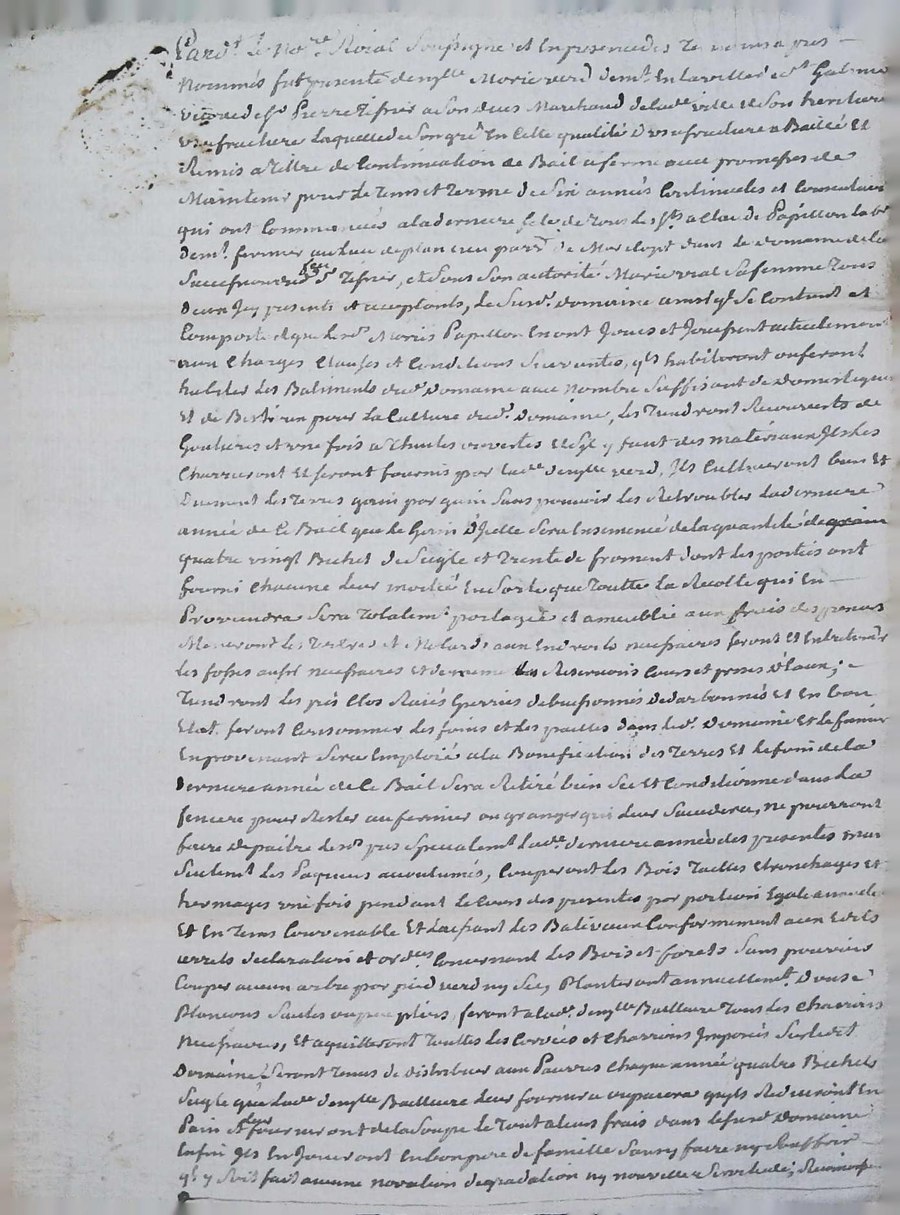 Pardt. le Nore. Roial Soussigné et En presence des Temoins apres
Nommés fut presente demylle Marie verd demt. En la ville de St Galmier
veuve de Sr Pierre Tissier a Son Deces Marchand de lade ville et Son heritiere
Usufructiere Laquelle de Son gré En Cette qualité D'usufructiere a Baillé Et
Remis a Tiltre de Continuation de Bail a ferme avec promesses de
Maintenir pour Le Tems et Terme de Six années Continuelles et Consecutives
qui ont Commencées a la derniere fete de Tous Les Sts a Claude Papillon labr
demt. fermier au lieu de parr de dans le domaine de la
Succession dud feu Sr Tissier, et Sous Son autorité Marie vial Sa femme Tous
Deux Icy presents et acceptants, Le Susd. domaine ainsi ql Se Contient et
Comporte et que led Mariés Papillon En ont Jouis et Jouissent actuellement
aux Charges Clauses et Conditions Suivantes, qls habiteront ou feront
habiter Les Batiments dud. Domaine avec Nombre Suffisant de Domestiques
Et de Bestiaux pour La Culture dud. Domaine, Les Tiendront Recouverts de
Goutieres et une fois a Thuiles ouvertes Et Sil y faut des materiaux Ils Les
Charrieront Et Seront fournis par lade demylle verd, Ils Cultiveront bien Et
Duement Les Terres gerin par gerin Sans pouvoir Les Retroubler La derniere
année de Ce Bail que le Gerin D'Icelle Sera Ensemencé de la quantité de grain
quatre vingt Bichet de Seigle et Trente de froment dont Les parties ont
fourni Chacune Leur moitié En Sorte que Toutte La Recolte qui En
Proviendra Sera Totalemt partagée et ameublie aux frais des preneurs
Meneront Les Terres et aux Endroits necessaires feront Et Entretiendr
Les fosses aussi necessaires Et de meme les Reservoirs Cours et prises D'Eaux;
Tiendront Les prés Clos Raiés Epierrés debuissonnés dedarbonnés Et En bon
Etat. feront Consommer Les foins et Les pailles dans led. Domaine Et Le fumier
En provenant Sera Emploié a la Bonification des Terres Et le foin de la
Derniere année de Ce Bail Sera Retiré bien Sec Et Conditionné dans La
feniere pour Rester au fermier ou granger qui Leur Succedera, ne pourront
faire depaitre Les prés Specialemt Lade. derniere année des presentes mais
Seulemt Les Paquiers accoutumés, Couperont Les Bois Taillis Etronchages Et
hermages une fois pendant Le Cours des presentes par portion Egale annuelle
Et En Tems Convenable Et Laissant Les Baliveaux Conformement aux Edits
arrets declaration et ordces Concernant Les Bois et forets Sans pouvoir
Couper aucun arbre par pied verd ny Sec, Planteront annuellemt. Douse
Plançons Saules ou peupliers, feront a lade. demylle Bailleure Tous Les Charrois
Necessaires, Et aquitteront Touttes Les Corvées et Charrois Imposés Sur led.
Domaine, Seront Tenus de distribuer aux Pauvres Chaque année quatre Bichets
Seigle que Lade demylle Bailleure Leur fournira ou paiera quils Reduiront En
Pain et leur fourniront de la Soupe Le Tout a leurs frais dans le Susd Domaine
Enfin Ils En Jouiront En bon pere de famille Sans y faire ny Souffrir
ql y Soit fait aucune novation degradation ny nouvelle Servitude;